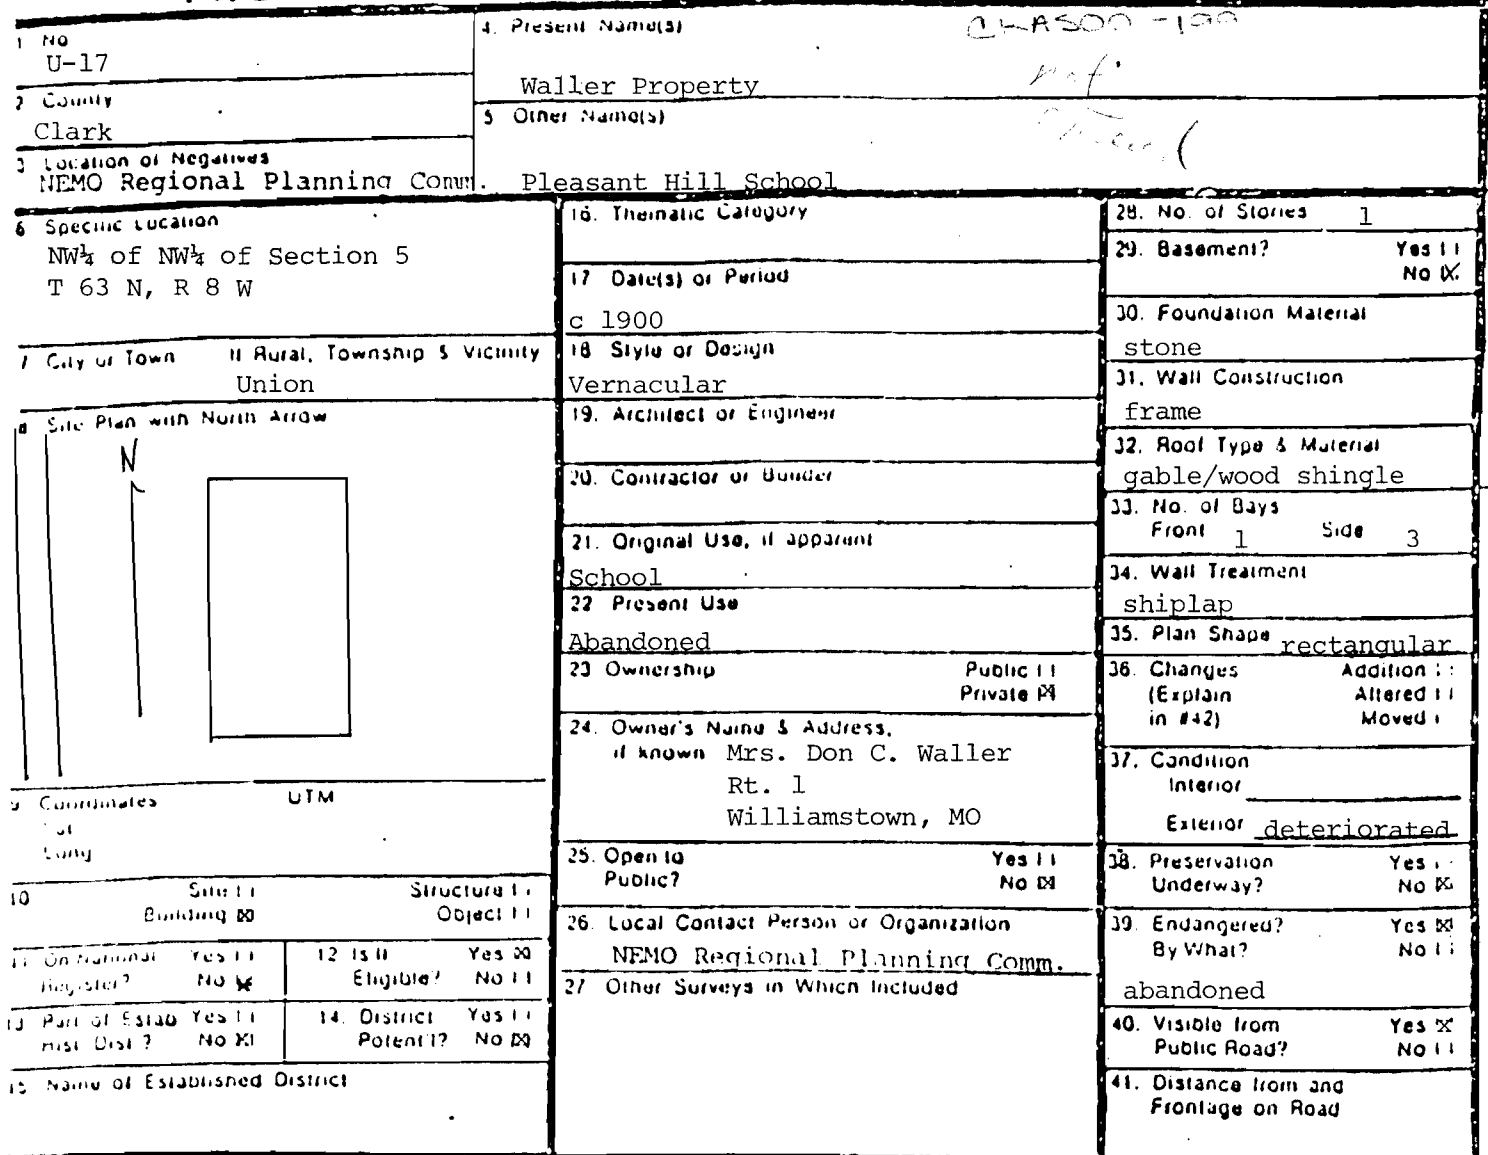 1 No
U-17
2 County
Clark
3 Location of Negatives
NEMO Regional Planning Comm.
4. Present Name(s)
Waller Property
5 Other Name(s)
Pleasant Hill School
6 Specific Location
NW¼ of NW¼ of Section 5
T 63 N, R 8 W
7 City or Town If Rural, Township & Vicinity
Union
8 Site Plan with North Arrow
N
9 Coordinates UTM
Lat
Long
10 Site Structure
Building Object
11 On National Yes
Register? No
12 Is It Yes
Eligible? No
13 Part of Estab Yes
Hist Dist? No
14. District Yes
Potent'l? No
15 Name of Established District
16. Thematic Category
17 Date(s) or Period
c 1900
18 Style or Design
Vernacular
19. Architect or Engineer
20. Contractor or Builder
21. Original Use, if apparent
School
22 Present Use
Abandoned
23 Ownership Public
Private
24. Owner's Name & Address,
if known Mrs. Don C. Waller
Rt. 1
Williamstown, MO
25. Open to Yes
Public? No
26. Local Contact Person or Organization
NEMO Regional Planning Comm.
27 Other Surveys in Which Included
28. No. of Stories 1
29. Basement? Yes
No
30. Foundation Material
stone
31. Wall Construction
frame
32. Roof Type & Material
gable/wood shingle
33. No. of Bays
Front 1 Side 3
34. Wall Treatment
shiplap
35. Plan Shape rectangular
36. Changes Addition
(Explain Altered
in #42) Moved
37. Condition
Interior
Exterior deteriorated
38. Preservation Yes
Underway? No
39. Endangered? Yes
By What? No
abandoned
40. Visible from Yes
Public Road? No
41. Distance from and
Frontage on Road